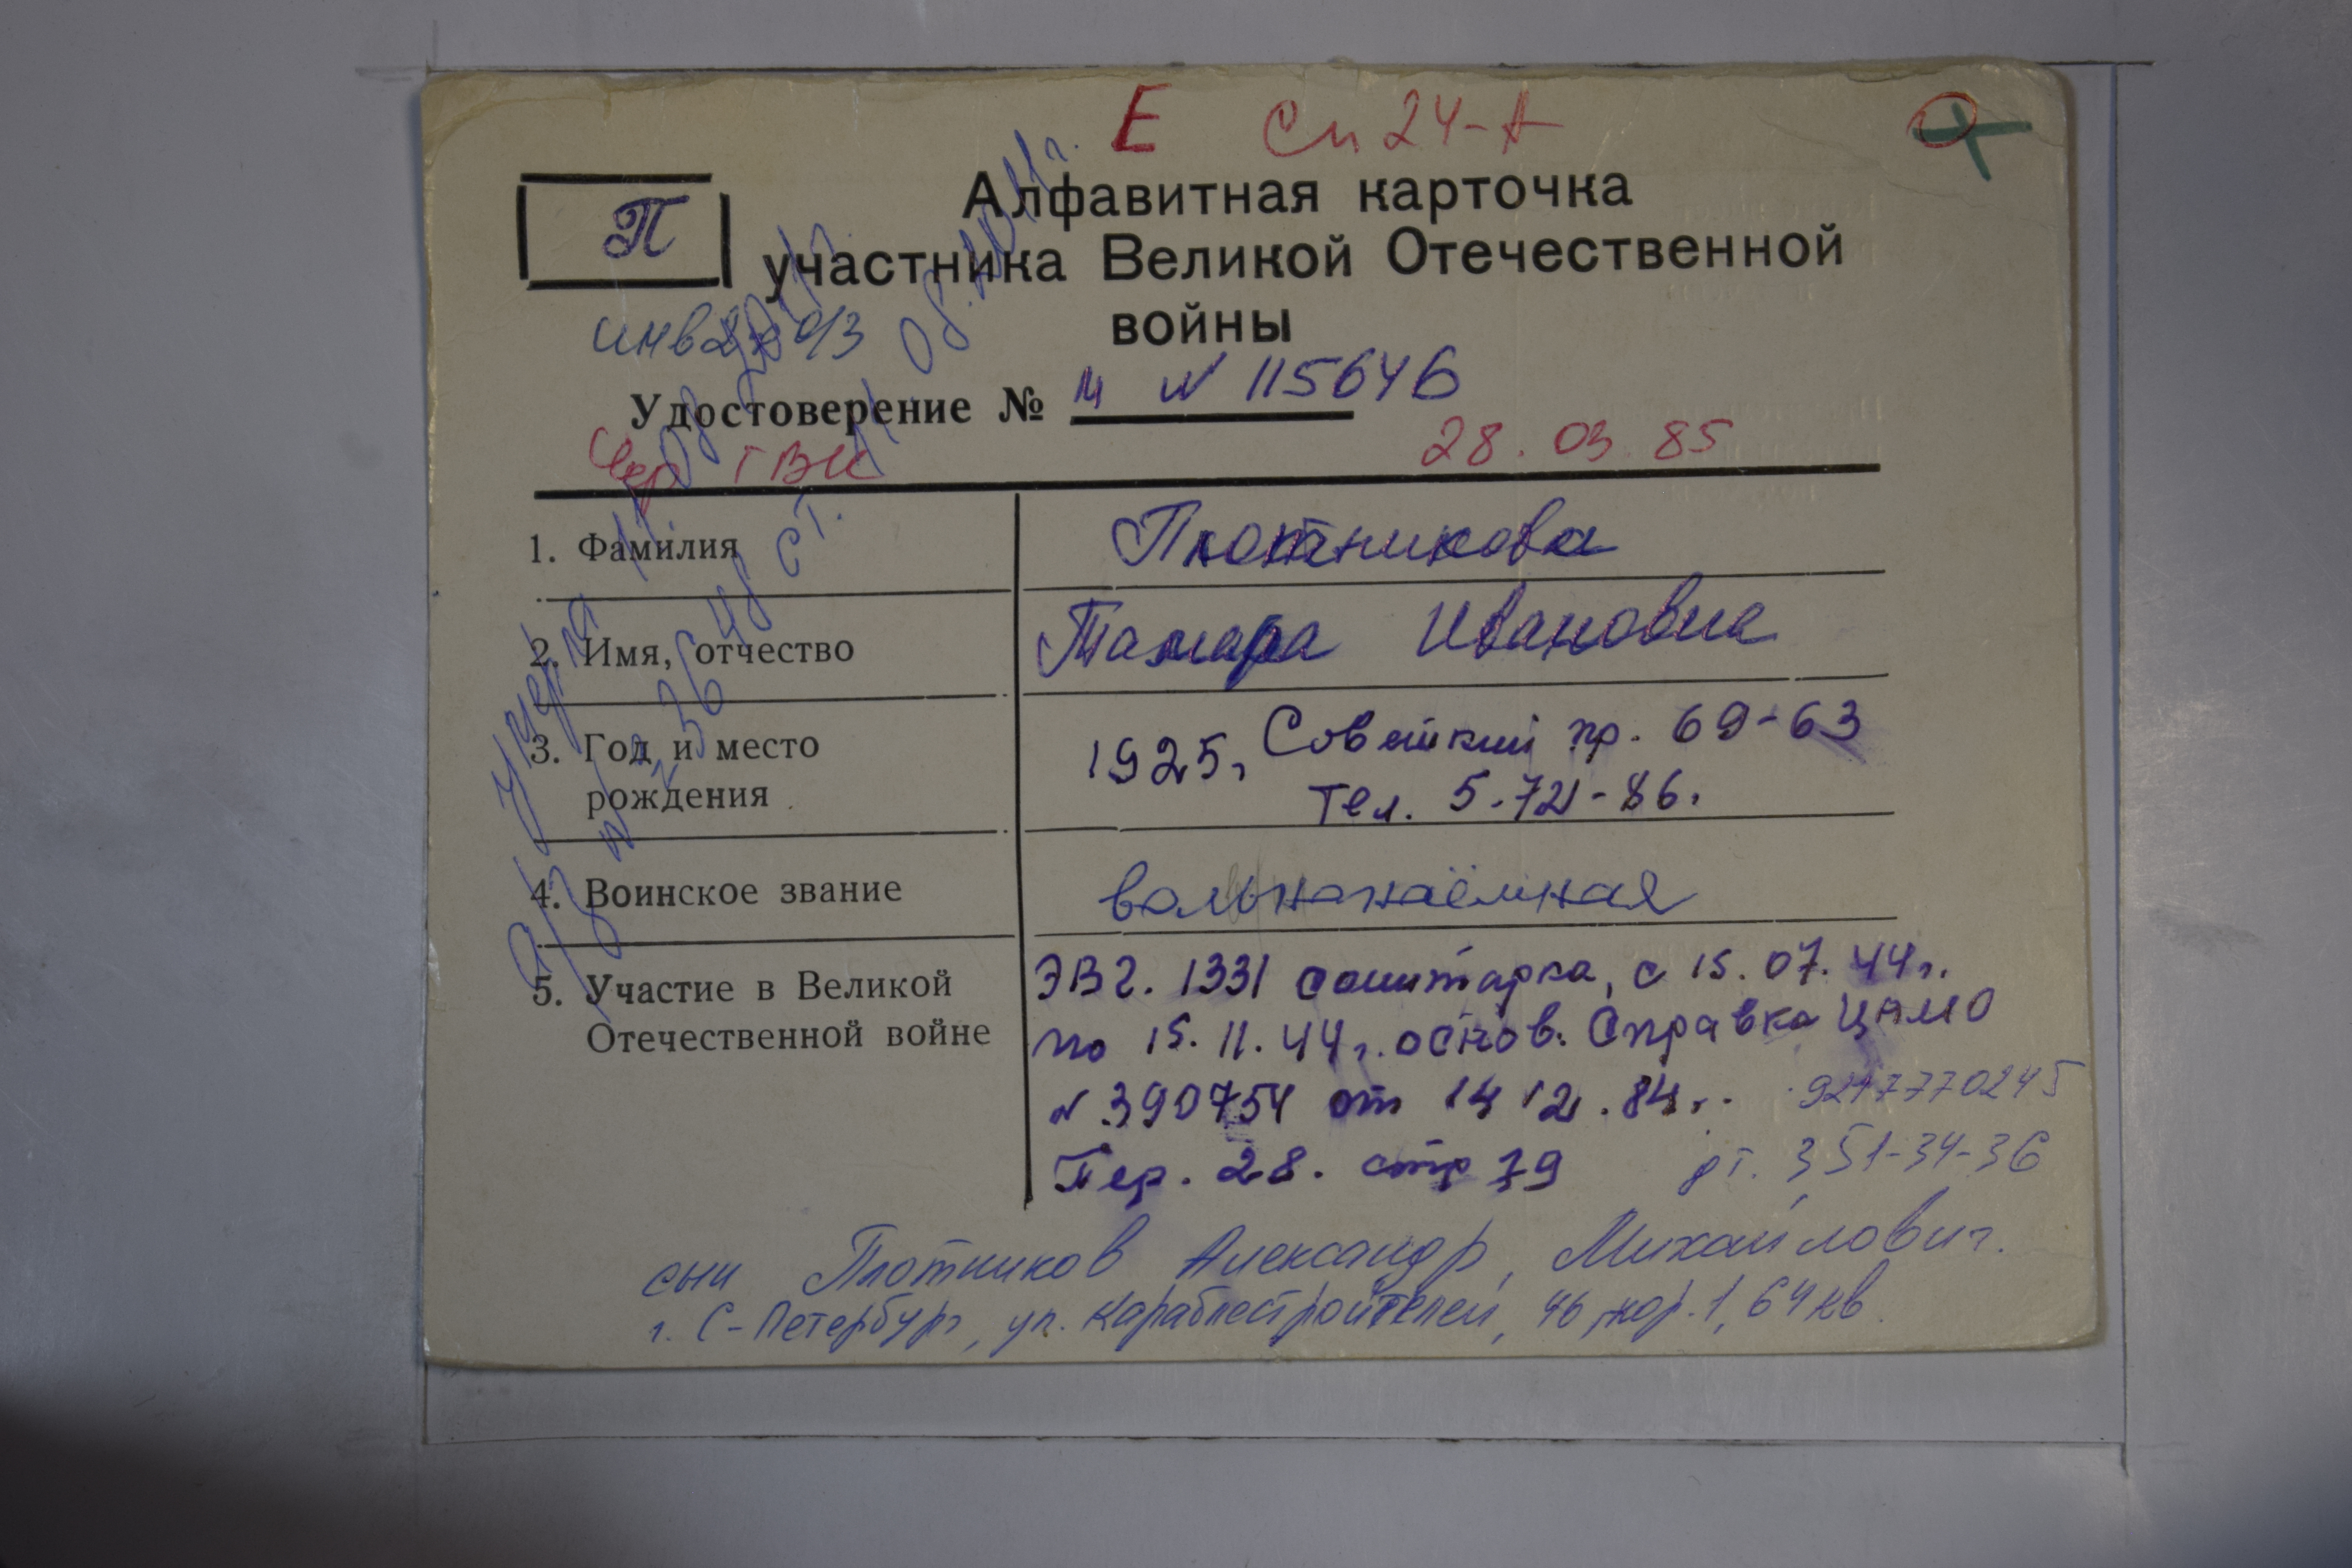 Е Сп 24-А
П
Алфавитная карточка
участника Великой Отечественной
войны
инв 2 гр о/з
Удостоверение № Ц № 115646
Чер ГВК 28.03.85
1. Фамилия Плотникова
2. Имя, отчество Тамара Ивановна
3. Год и место рождения 1925г Советский пр. 69-63
Тел. 5-72-86.
4. Воинское звание вольнонаёмная
5. Участие в Великой Отечественной войне ЭВГ. 1331 санитарка, с 15.07.44г.
по 15.11.44г. основ. Справка ЦАМО
№ 390754 от 14 12.84г.
9217770245
Пер. 28. стр 79 дт. 351-34-36
сын Плотников Александр Михайлович.
г. С-Петербург, ул. Караблестроителей, 46, кор. 1, 64 кв.
умерла 11.08.2011г.
з/в № 3648 ст. 11.08.2011г.